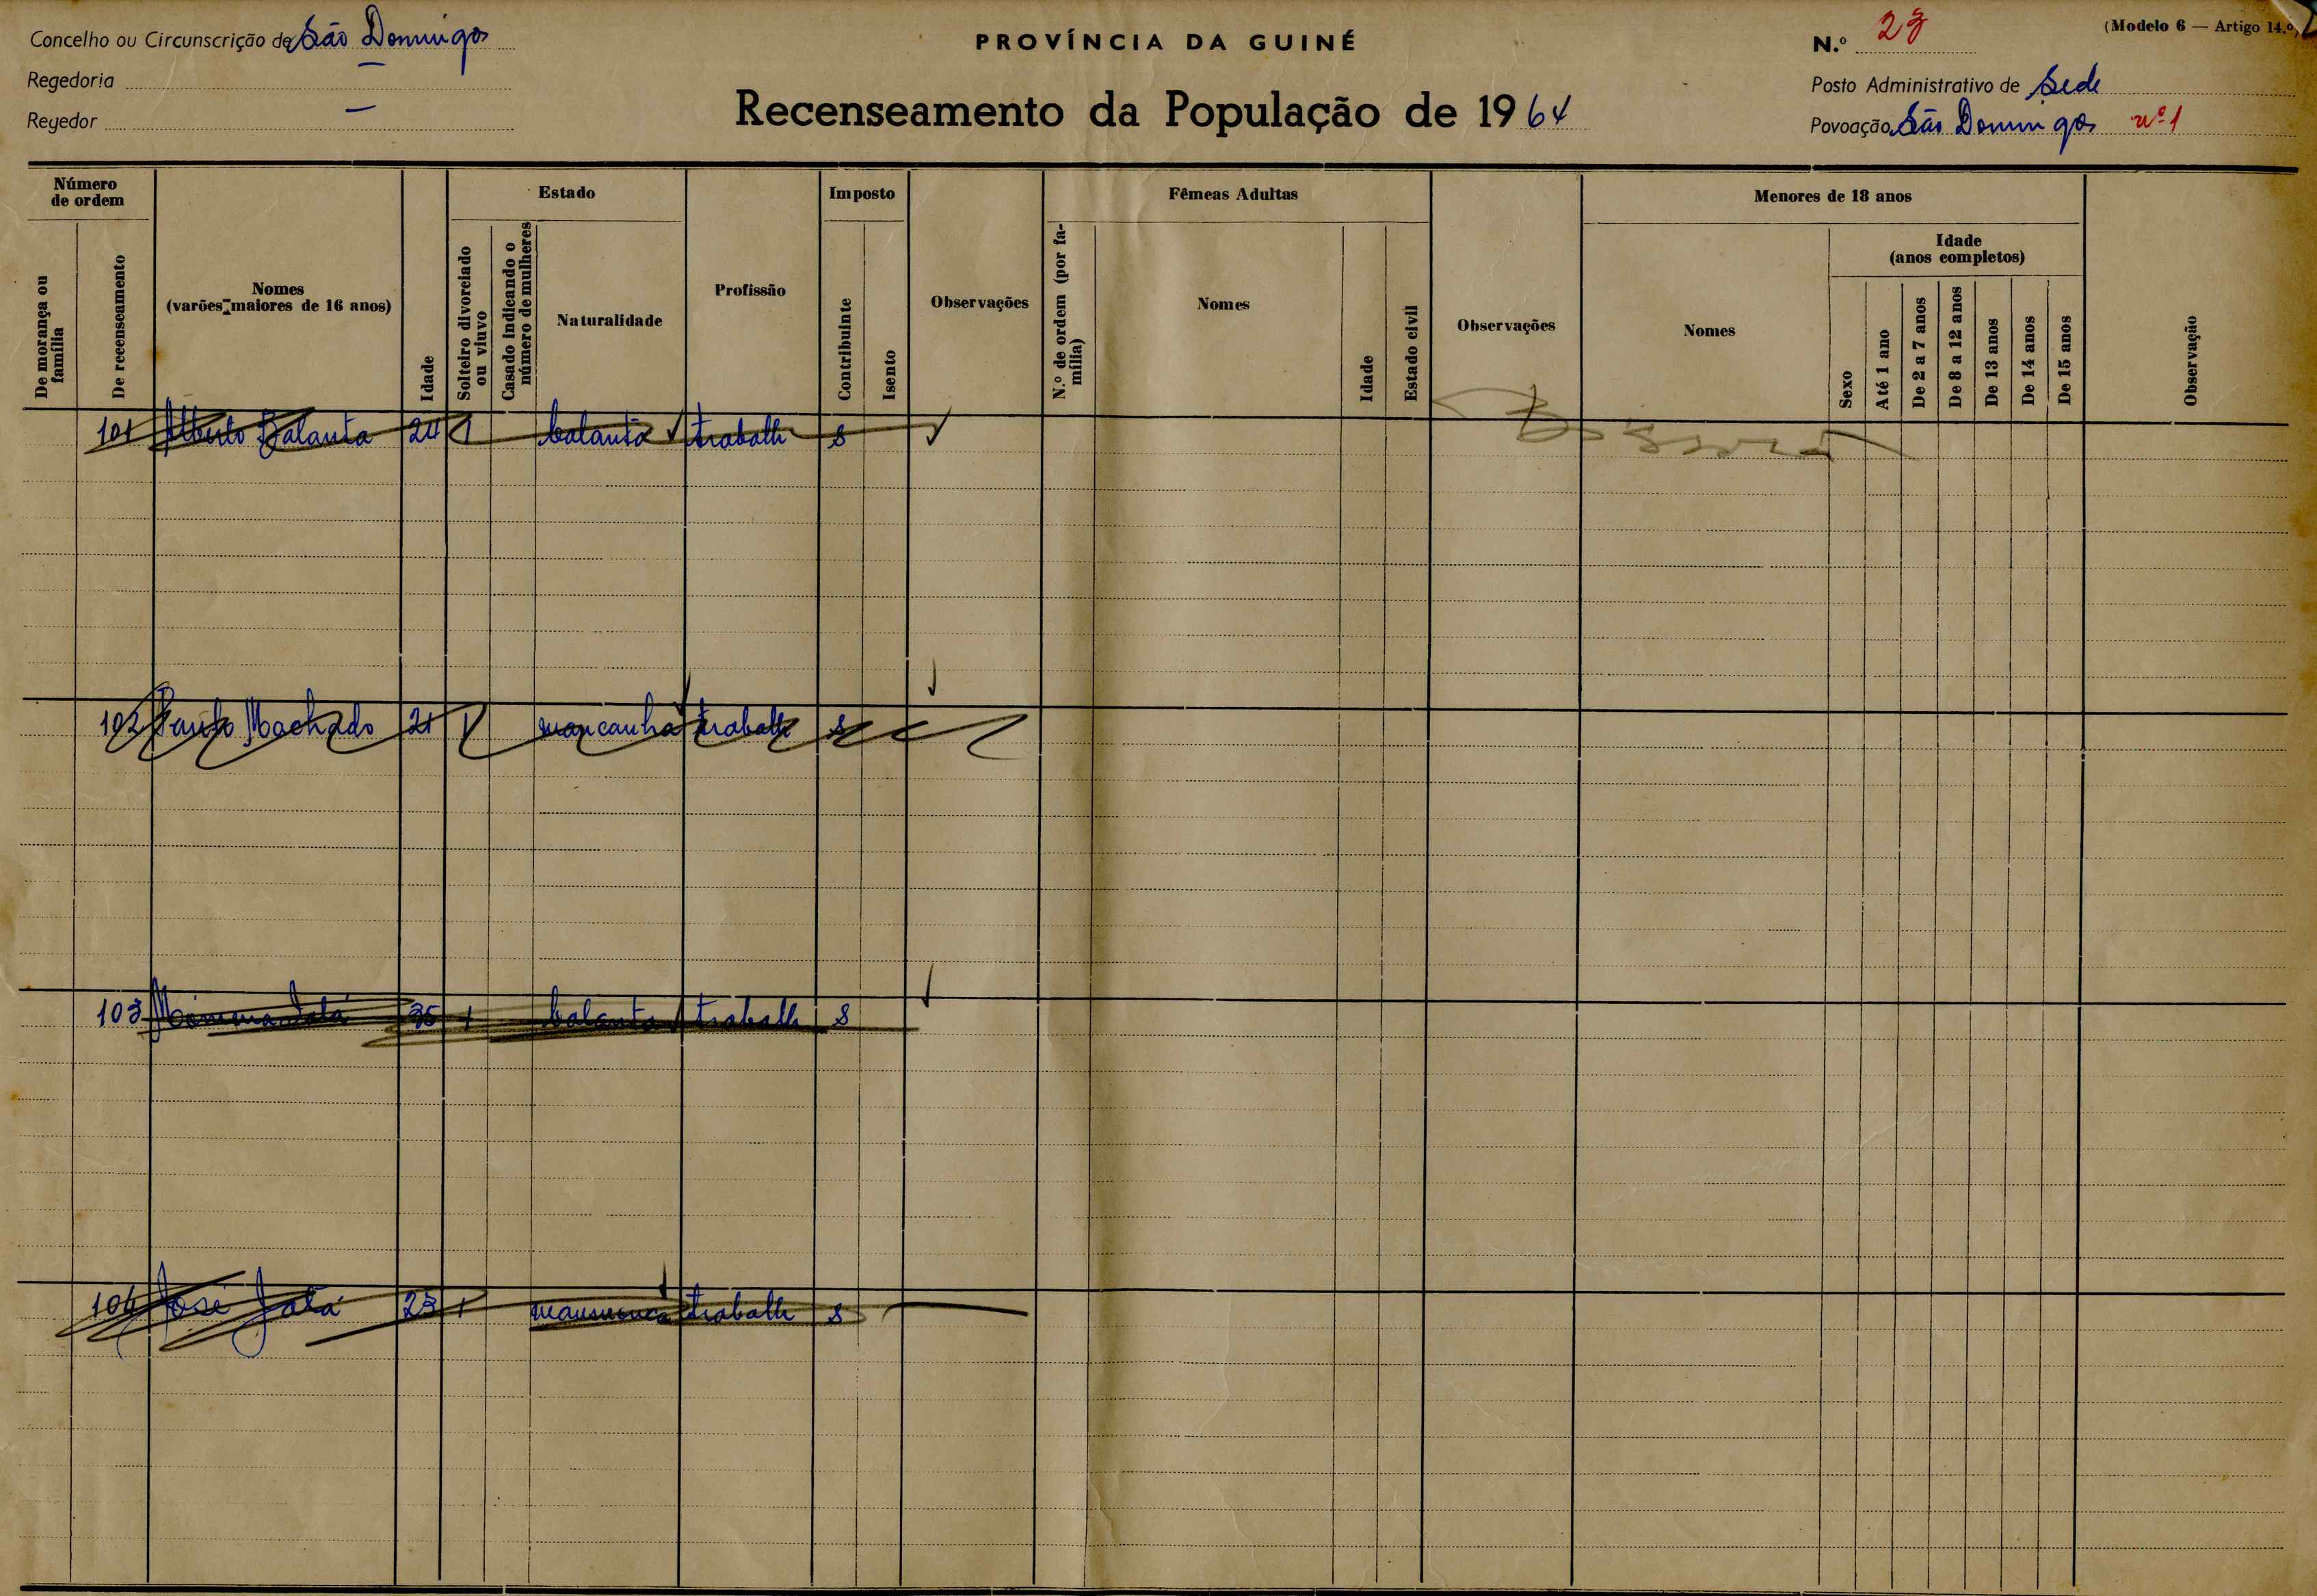 Concelho ou Circunscrição de São Domingos
PROVÍNCIA DA GUINÉ
N.º 23
(Modelo 6 — Artigo 14.º)
Regedoria —
Posto Administrativo de Sede
Regedor —
Recenseamento da População de 1964
Povoação São Domingos nº 1
Número de ordem
De morança ou família
De recenseamento
Nomes
(varões maiores de 16 anos)
Idade
Estado
Solteiro divorciado ou viuvo
Casado indicando o número de mulheres
Naturalidade
Profissão
Imposto
Contribuinte
Isento
Observações
Fêmeas Adultas
N.º de ordem (por família)
Nomes
Idade
Estado civil
Observações
Menores de 18 anos
Nomes
Sexo
Idade
(anos completos)
Até 1 ano
De 2 a 7 anos
De 8 a 12 anos
De 13 anos
De 14 anos
De 15 anos
Observação
101 Alberto Balanta 24 1 balanta trabalh s
102 Paulo Machado 21 1 mancanha trabalh s
103 35 1 balanta trabalh s
104 José 23 1 trabalh s